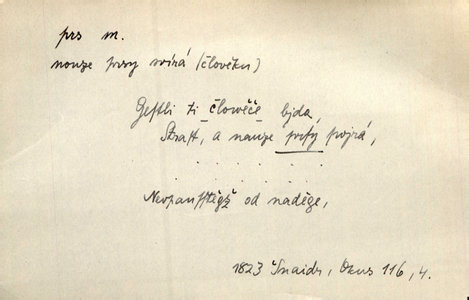 prs m.
nouze prsy svírá (člověku)
Gestli ti člověče bjda,
Strast, a nauze prsy swjrá,
. . . . . .
. . . . . .
Neopausstěgž od naděge,
1823 Šnaidr, Okus 116, 4.